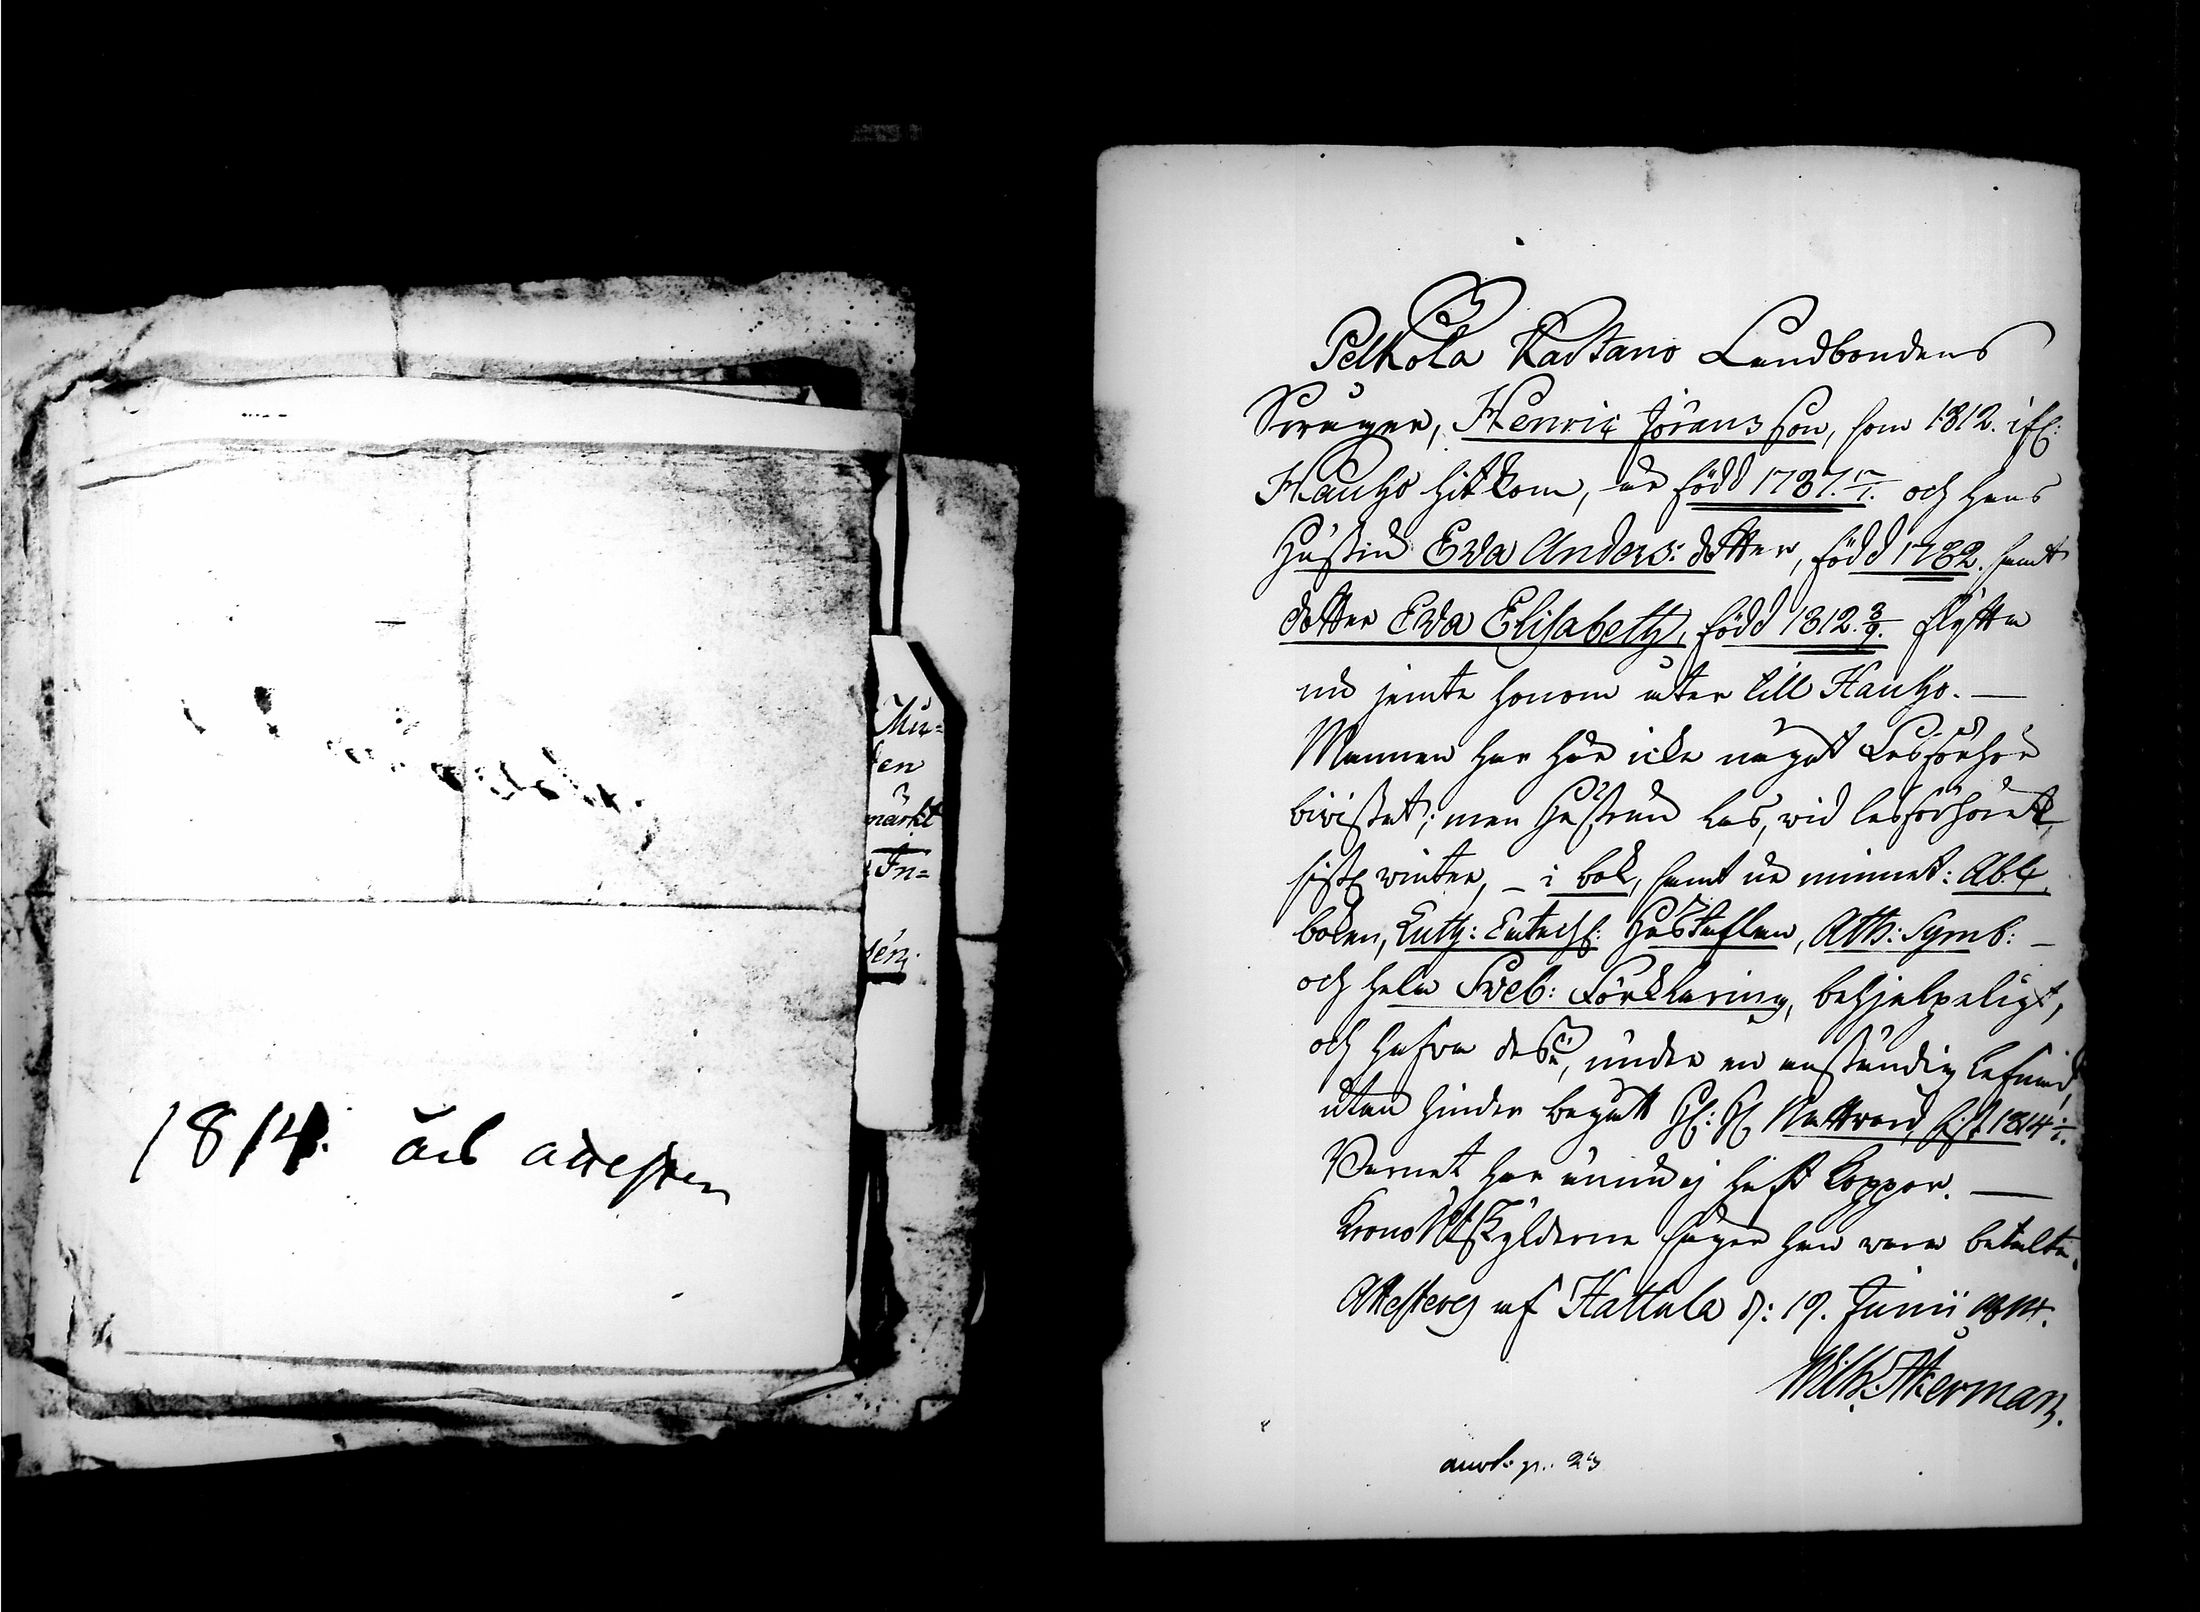 1814. års attester
Mu-
en
märkt
Fn-
sén.
Pelkola Kartano Landbondens
Swåger, Henric Jöransson, som 1812. ifr:
Hauho hitkom, är född 1787. 17/1. och hans
Hustru Ewa Anders: dotter, född 1782. samt
dotter Ewa Elisabeth, född 1812. 3/9. flytta
nu jemte honom åter till Hauho. —
Mannen har här icke något Läsförhör
biwistat; men Hustrun läs, wid läsförhöret
sistl. winter, – i bok, samt ur minnet: Ab.c
boken, Luth: Cateches: Hustaflan, Ath: Symb: –
och hela Sveb: Förklaring, behjelpeligt,
och hafva desse, under en anständig lefnad,
utan hinder begått H: H: Nattvard, sist 1814
Barnet har ännu ej haft koppor. —
Krono Utskylderne säger han vara betalte.
Attesteras af Hattula d: 19. Junii 1814.
Wilh: Åkerman.
anot: p.. 23